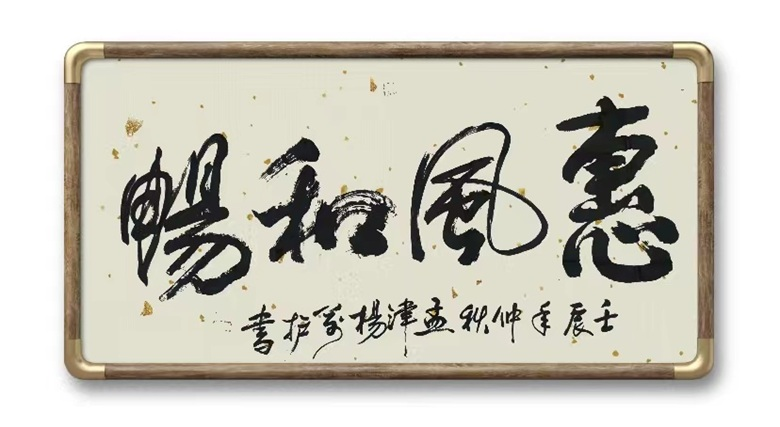 惠風和暢
壬辰年仲秋孟津楊萬护書